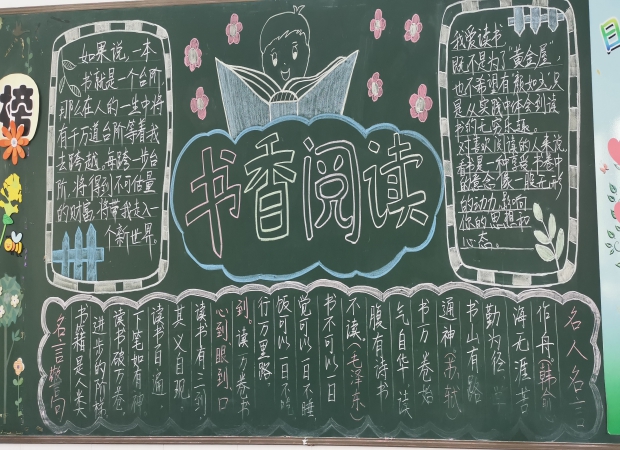 榜
如果说,一本
书就是一个台阶
那么在人的一生中将
有千万道台阶等着我
去跨越。每跨一步台
阶,将得到不可估量
的财富,将带我走入一
个新世界。
书香阅读
我爱读书
既不是为了“黄金屋”,
也不希望有颜如玉,只
是从实践中体会到读
书的无穷乐趣。
对喜欢阅读的人来说,
看书是一种享受,书本中
的集会像一股无形
的动力,影响
你的思想和
心态。
名人名言
作舟。(韩愈)
海无涯苦
勤为径
书山有路
通神(苏轼)
书万卷始
气自华 读
腹有诗书
不读。(毛泽东)
书不可以一日
觉可以一日不睡
饭可以一日不吃
行万里路。
读万卷书
到
心到眼到口
读书有三到
其义自现
读书百遍
下笔如有神
读书破万卷
进步的阶梯
书籍是人类
名言警句